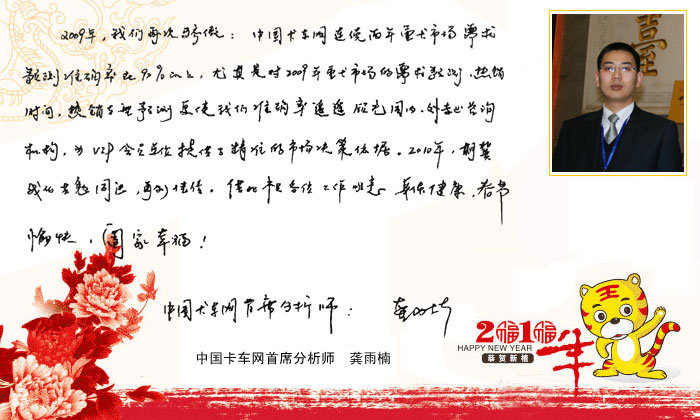 2009年,我们再次骄傲:中国卡车网连续两年重卡市场需求
预测准确率在90%以上,尤其是对2009年重卡市场的需求预测、热销
时间、热销车型预测更使我们准确率遥遥领先国内、外专业咨询
机构,为VIP会员单位提供了精准的市场决策依据。2010年,期冀
我们共同,再创佳绩。借此祝各位工作顺意、身体健康、春节
愉快,阖家幸福!
中国卡车网首席分析师:龚雨楠
中国卡车网首席分析师 龚雨楠
2010
HAPPY NEW YEAR
恭贺新禧
王